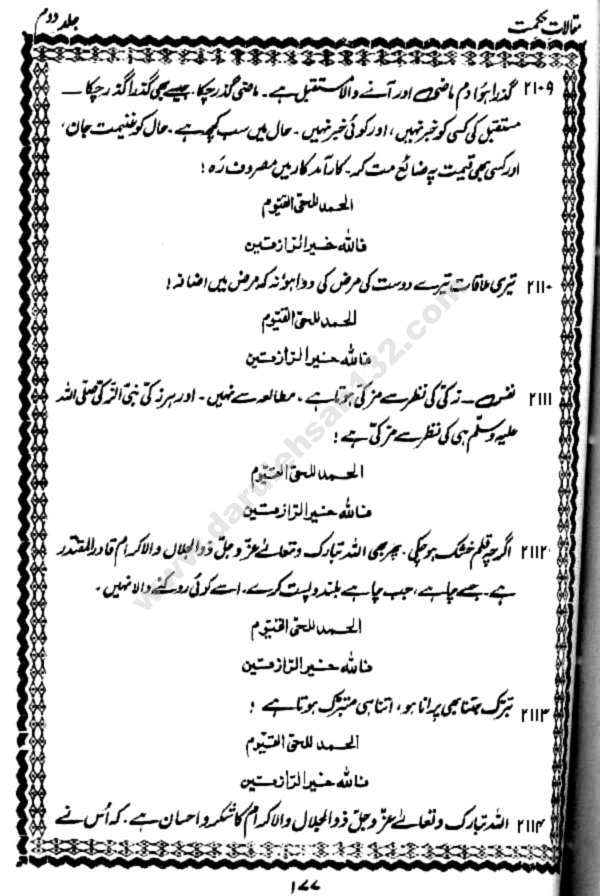 مقالاتِ حکمت
جلد دوم
۲۱۰۹ گذرا ہوا دم ماضی اور آنے والا مستقبل ہے۔ ماضی گذر چکا، جیسے بھی گذرا گذر چکا۔
مستقبل کی کسی کو خبر نہیں، اور کوئی خبر نہیں۔ حال میں سب کچھ ہے۔ حال کو غنیمت جان،
اور کسی بھی قیمت پہ ضائع مت کر۔ کارآمد کار میں مصروف رہ!
الحمد للحی القیوم
فاللہ خیر الرازقین
۲۱۱۰ تیری ملاقات تیرے دوست کی مرض کی دوا ہو نہ کہ مرض میں اضافہ!
الحمد للحی القیوم
فاللہ خیر الرازقین
۲۱۱۱ نفس۔ زکی کی نظر سے مزکّٰی ہوتا ہے، مطالعہ سے نہیں۔ اور ہر زکی نبی الزکی صلی اللہ
علیہ وسلم ہی کی نظر سے مزکّٰی ہے!
الحمد للحی القیوم
فاللہ خیر الرازقین
۲۱۱۲ اگرچہ قلم خشک ہو چکی، پھر بھی اللہ تبارک وتعالےٰ عزّ وجلّ ذوالجلال والاکرام قادر المقتدر
ہے۔ جسے چاہے، جب چاہے بلند و پست کرے، اسے کوئی روکنے والا نہیں۔
الحمد للحی القیوم
فاللہ خیر الرازقین
۲۱۱۳ تبرّک جتنا بھی پرانا ہو، اتنا ہی متبرّک ہوتا ہے!
الحمد للحی القیوم
فاللہ خیر الرازقین
۲۱۱۴ اللہ تبارک وتعالےٰ عزّ وجلّ ذوالجلال والاکرام کا شکر و احسان ہے۔ کہ اُس نے
۱۷۷